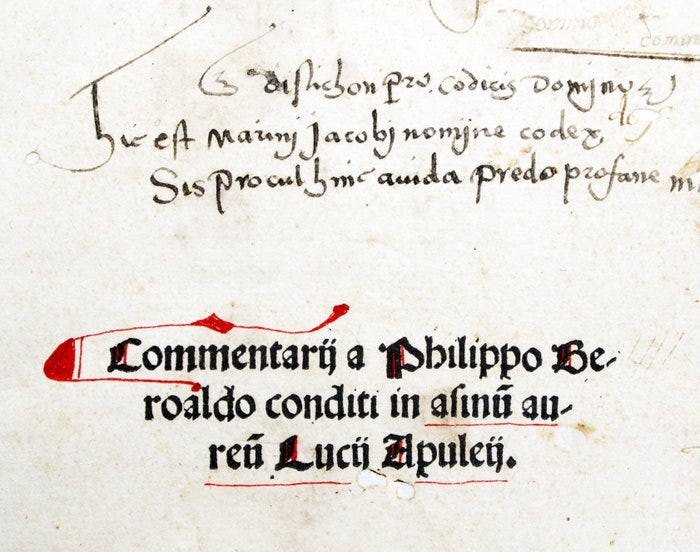 distichon pro codicis Domino
hic est Marinj Jacobj nomine codex
Sis procul hinc auida predo profane
Commentarij a Philippo Be-
roaldo conditi in asinū au-
reū Lucij Apuleij.